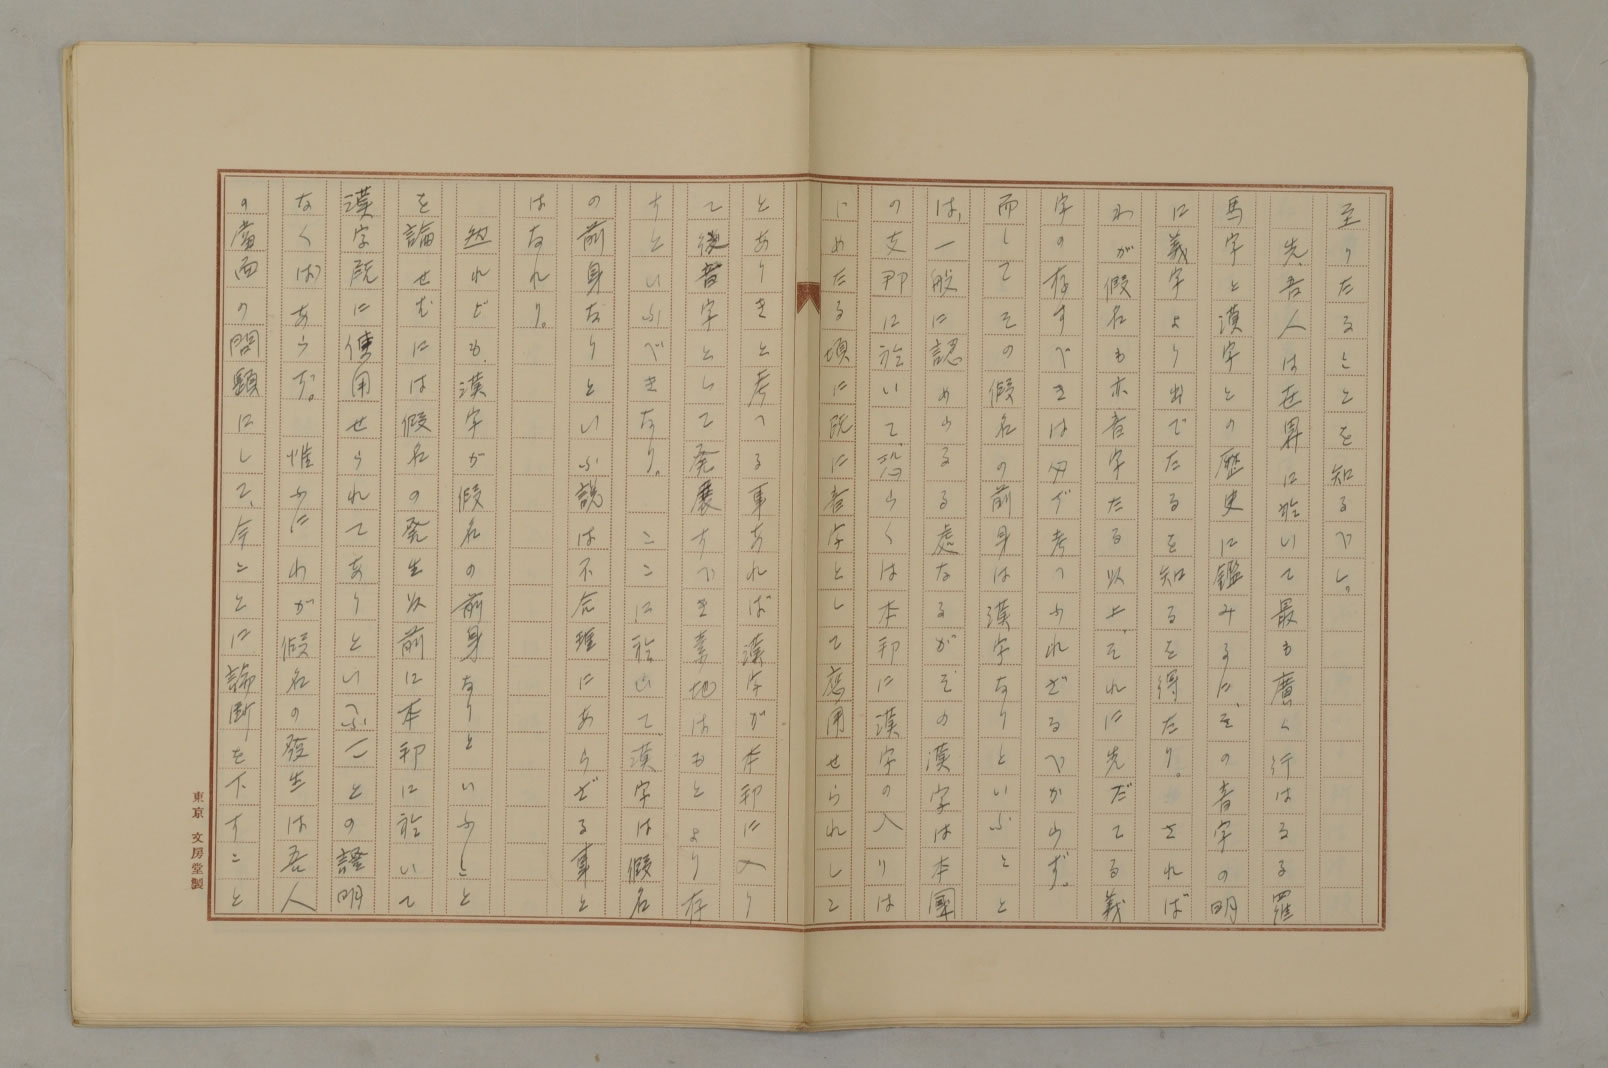 至りたることを知るべし。
先、吾人は世界に於いて最も廣く行はるる羅
馬字と漢字との歴史に鑑みるに、その音字の明
に義字より出でたるを知るを得たり。されば
わが假名も亦音字たる以上、それに先だてる義
字の存すべきはまづ考へられざるべからず。
而してその假名の前身は漢字なりといふこと
は、一般に認めらるる處なるがその漢字は本國
の支那に於いて、恐らくは本邦に漢字の入りは
じめたる頃に既に音字として應用せられしこ
とありきと考へる事あれば漢字が本邦に入り
て後音字として発展すべき素地はもとより存
すといふべきなり。ここに於て漢字は假名
の前身なりといふ説は不合理にあらざる事と
はなれり。
然れども、漢字が假名の前身なりといふこと
を論せむには假名の発生以前に本邦に於いて
漢字既に使用せられてありといふことの證明
なくばあらず。惟ふにわが假名の發生は吾人
の當面の問題にして、今ことに論断を下すこと
東京 文房堂製